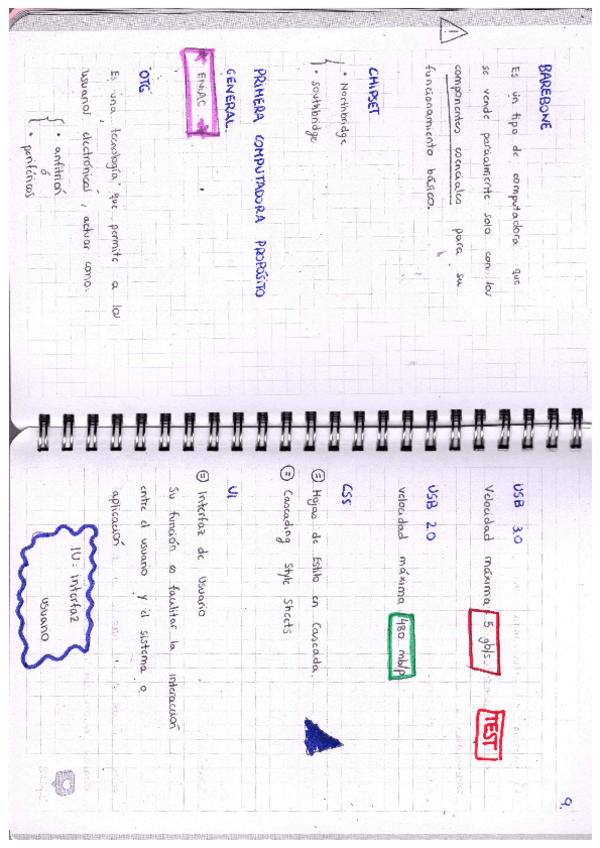 BAREBONE
Es un tipo de computadora que
se vende parcialmente solo con los
componentes esenciales para su
funcionamiento básico.
CHIPSET
• Northbridge
• Southbridge
PRIMERA COMPUTADORA PROPÓSITO
GENERAL.
ENIAC
OTG
Es una "tecnología" que permite a los
usuarios electrónicos, actuar como.
• anfitrión
ó
• periféricos
9.
USB 3.0
Velocidad máxima 5 gb/s.
TEST
USB 2.0
velocidad máxima 480 mb/p
CSS
= Hojas de Estilo en Cascada.
= Cascading Style Sheets
UI
= Interfaz de usuario
Su función es facilitar la interacción
entre el usuario y el sistema o
aplicación
IU: interfaz
usuario